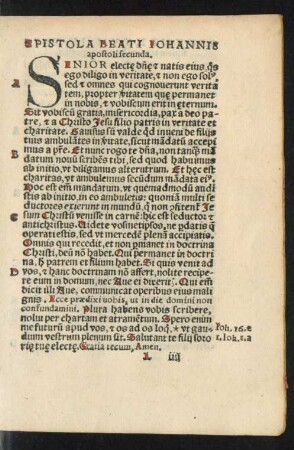 EPISTOLA BEATI IOHANNIS
apostoli secunda.
SENIOR electę dñę & natis eius, q̃s
ego diligo in veritate, & non ego sol9,
A
sed & omnes qui cognouerunt verita
tem, propter ṽitatem quę permanet
in nobis, & vobiscum erit in ęternum.
Sit vobiscũ gratia, misericordia, pax a deo pa-
tre, & a Christo Iesu filio patris in veritate et
charitate. Gauisus sũ valde qđ inueni de filijs
tuis ambulãtes in ṽitate, sicut mãdatũ accepi
B
mus a pr̃e. Et nunc rogo te dña, non tanq̃ mã
datum nouũ scribẽs tibi, sed quod habuimus
ab initio, vt diligamus alterutrum. Et hęc est
charitas, vt ambulemus secũdum mãdata ei9.
Hoc est eñ mandatum, vt quemadmodũ audi
stis ab initio, in eo ambuletis: quoniã multi se
ductores exierunt in mundũ, q̃ non ꝓfitent̃ Ie
C
sum Christũ venisse in carnẽ: hic est seductor &
antichristus. Videte vosmetipsos, ne ꝑdatis q̃
operati estis, sed vt mercedẽ plenã accipiatis.
Omnis qui recedit, et non ꝑmanet in doctrina
Christi, deũ nõ habet. Qui permanet in doctri
na, h̃ patrem et filium habet. Si quis venit ad
D
vos, & hanc doctrinam nõ affert, nolite recipe
re eum in domum, nec Aue ei dixerit̃. Qui eñ
dicit illi Aue, communicat operibus eius mali
gnis. Ecce prædixi vobis, ut in die domini non
confundamini. Plura habens vobis scribere,
nolui per chartam et atramẽtum. Spero enim
me futurũ apud vos, & os ad os loq̃, * vt gau
Ioh. 16. e
dium vestrum plenum sit. Salutant te filij soro
1. Ioh. 1. a
ris tuę electę. Gratia tecum, Amen.
A iiij